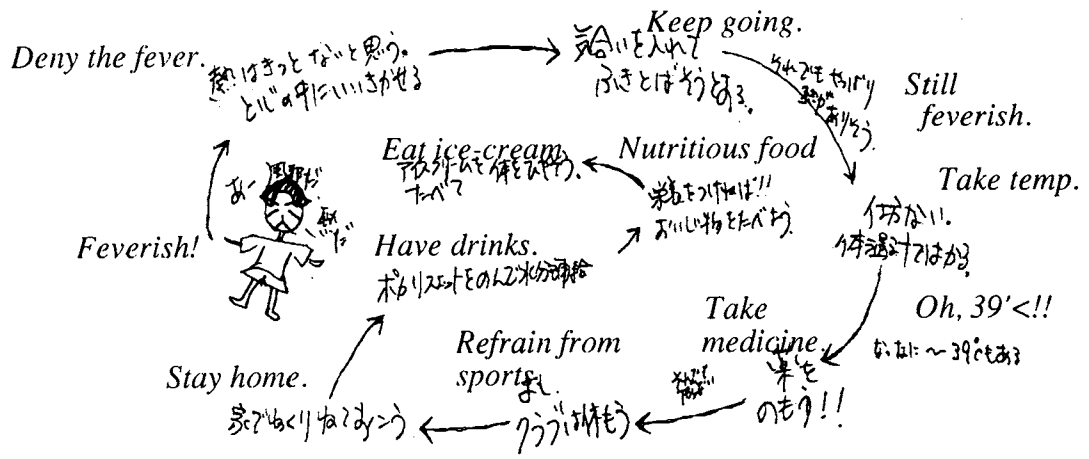 Feverish!
あー 風邪だ
熱
だ
Deny the fever.
熱はきっとないと思う。
と心の中にいいきかせる
Keep going.
気合いを入れて
ふきとばそうとする。
Still
feverish.
それでもやっぱり
熱が
ありそう。
Take temp.
仕方ない。
体温計ではかる。
Oh, 39'<!!
なっなに〜39℃もある
Take
medicine.
薬を
のもう!!
Refrain from
sports.
よし
クラブは休もう
Stay home.
家でゆっくりねておこう
Have drinks.
ポカリスエットをのんで水分補給
Nutritious food
栄養をつけねば!!
おいしい物をたべよう。
Eat ice-cream.
アイスクリームを
たべて
体をひやそう。